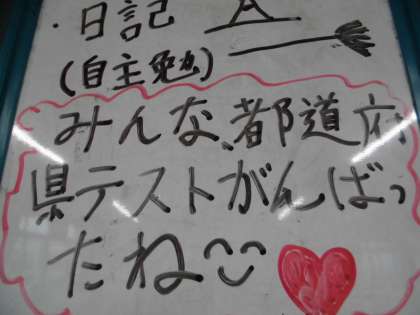 ・日記
(自主勉)
みんな、都道府
県テストがんばっ
たね